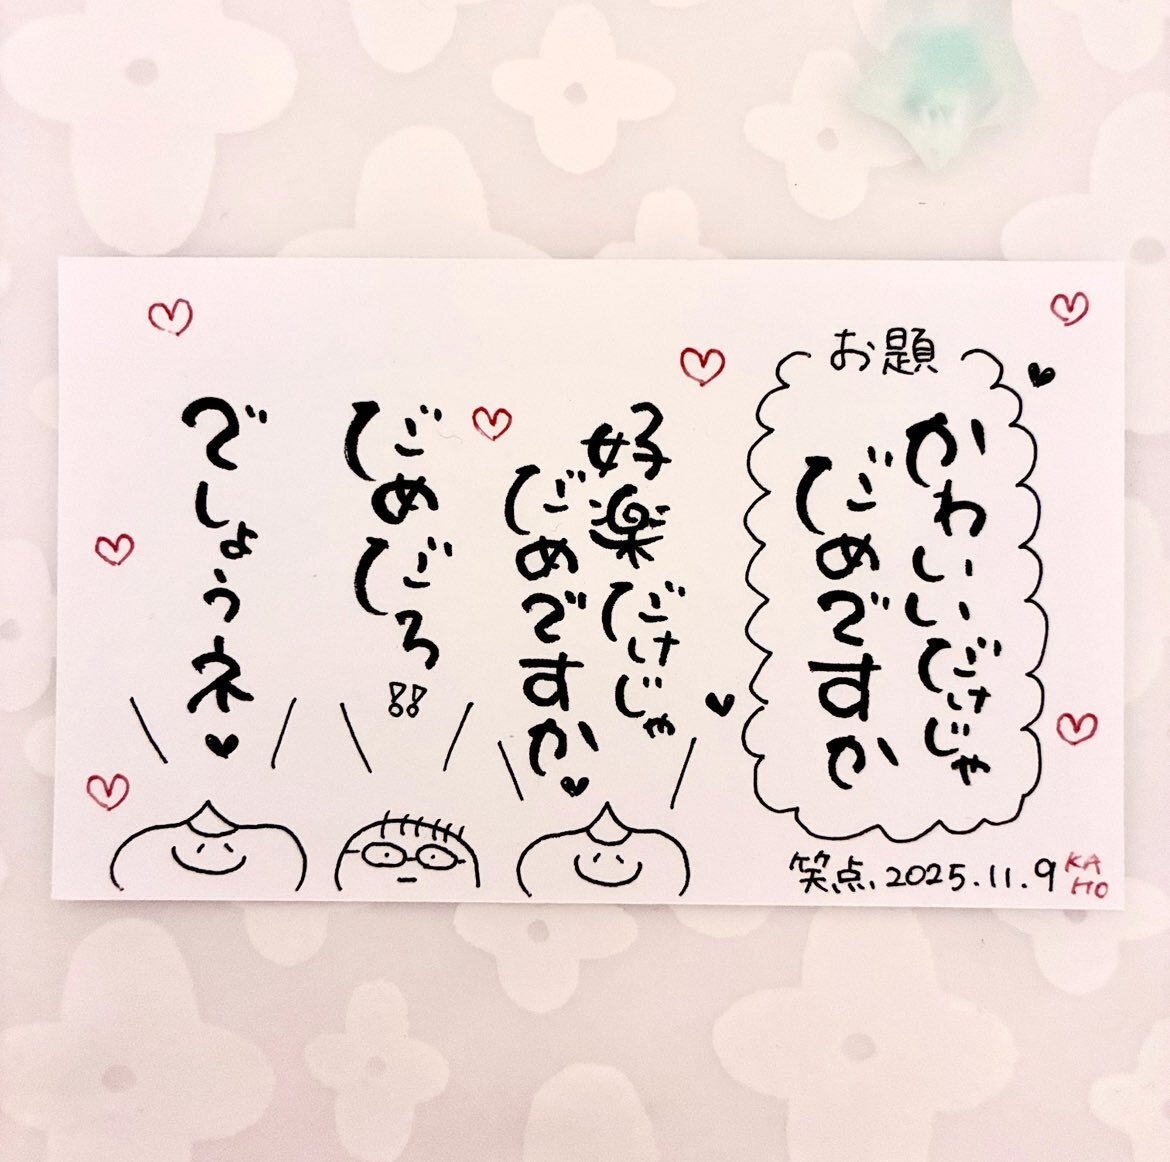 お題
かわいいだけじゃ
だめですか
好楽だけじゃ
だめですか♥
だめだろ!!
でしょうネ♥
笑点.2025.11.9
KA
HO